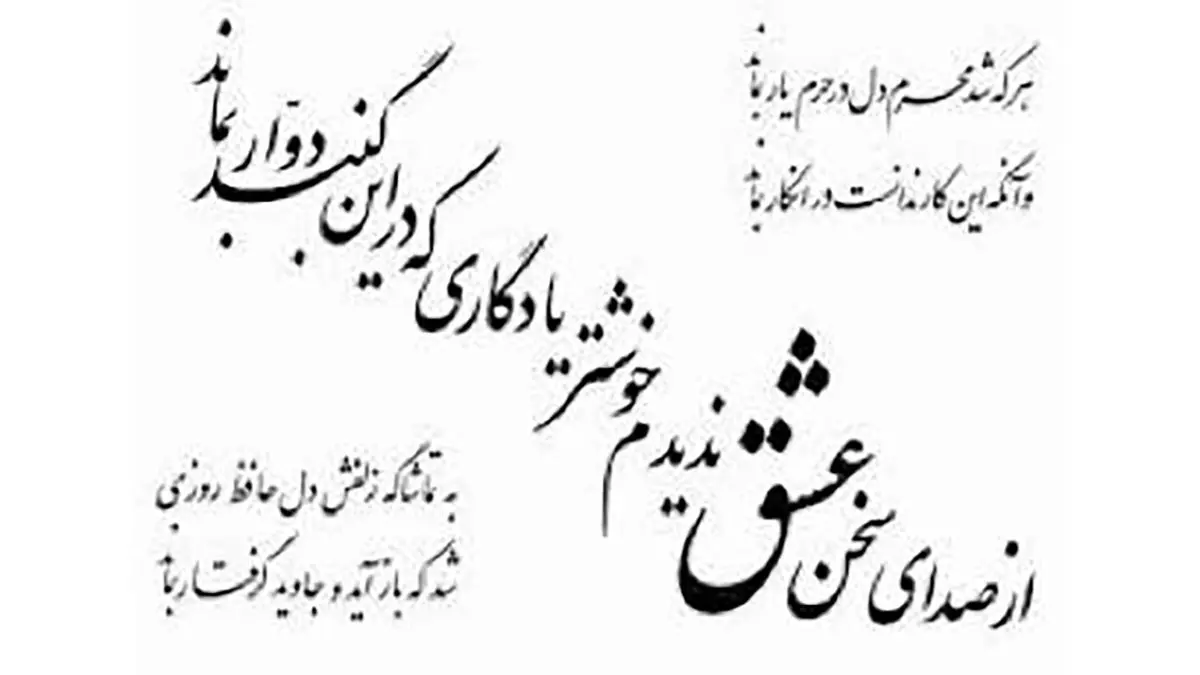 هر که شد محرم دل در حرم یار بماند
وآنکه این کار ندانست در انکار بماند
از صدای سخن عشق ندیدم خوشتر
یادگاری که در این گنبد دوار بماند
به تماشاگه زلفش دل حافظ روزی
شد که باز آید و جاوید گرفتار بماند